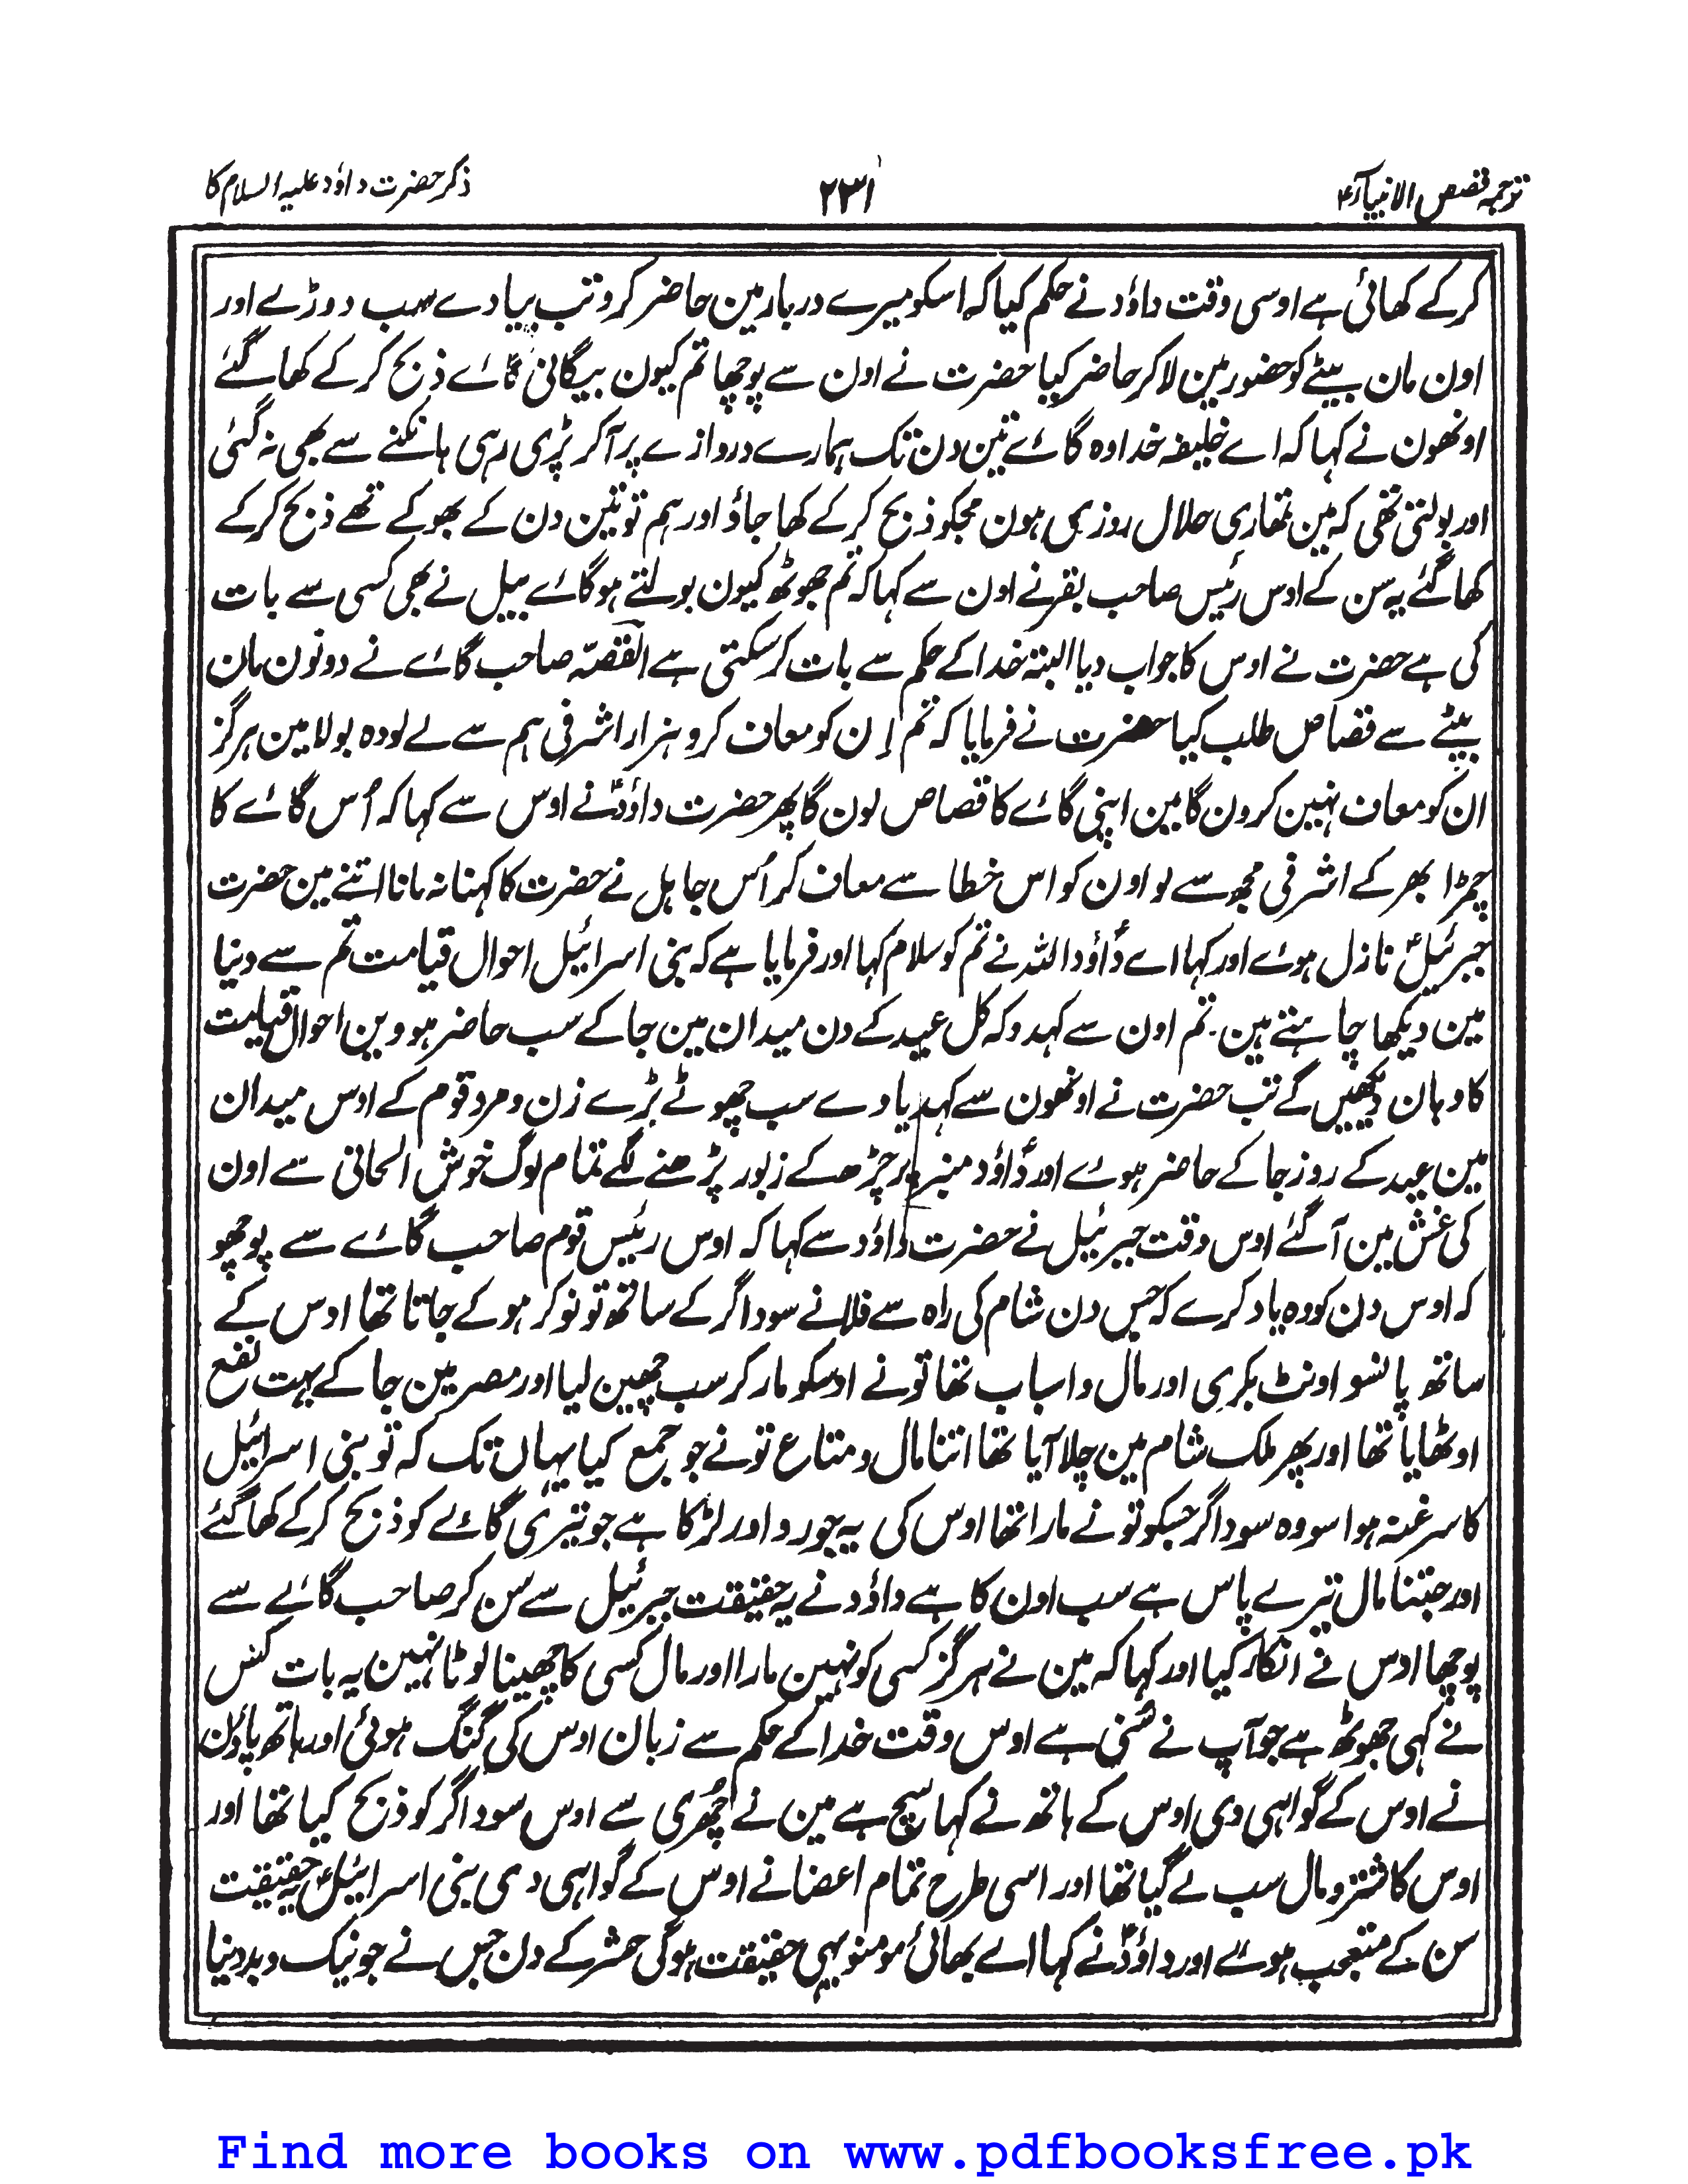 ترجمہ قصص الانبیآء
۲۳۱
ذکر حضرت داؤد علیہ السلام کا
کرکے کھائی ہے اوسی وقت داؤد نے حکم کیا کہ اسکو میرے دربار مین حاضر کرو تب پیادے سب دوڑے اور
اون مان بیٹے کو حضور مین لاکر حاضر کیا حضرت نے اون سے پوچھا تم کیون بیگانی گاۓ ذبح کرکے کھا گئے
اونھون نے کہا کہ اے خلیفہ خدا وہ گاۓ تین دن تک ہمارے دروازے پر آکر پڑی رہی ہانکنے سے بھی نہ گئی
اور بولتی تھی کہ مین تمھاری حلال روزی ہون مجکو ذبح کرکے کھا جاؤ اور ہم تو تین دن کے بھوکے تھے ذبح کرکے
کھا گئے یہ سن کے اوس رئیس صاحب بقر نے اون سے کہا کہ تم جھوٹھ کیون بولتے ہو گاۓ بیل نے بھی کسی سے بات
کی ہے حضرت نے اوس کا جواب دیا البتہ خدا کے حکم سے بات کرسکتی ہے القصّہ صاحب گاۓ نے دونون مان
بیٹے سے قصاص طلب کیا حضرت نے فرمایا کہ تم اِن کو معاف کرو ہزار اشرفی ہم سے لے لو وہ بولا مین ہرگز
ان کو معاف نہین کرون گا مین اپنی گاۓ کا قصاص لون گا پھر حضرت داؤدؑ نے اوس سے کہا کہ اُس گاۓ کا
چمڑا بھر کے اشرفی مجھ سے لو اون کو اس خطا سے معاف کر اُس جاہل نے حضرت کا کہنا نہ مانا اتنے مین حضرت
جبرئیلؑ نازل ہوۓ اور کہا اے داؤد اللہ نے تم کو سلام کہا اور فرمایا ہے کہ بنی اسرائیل احوال قیامت تم سے دنیا
مین دیکھا چاہتے ہین تم اون سے کہدو کہ کل عید کے دن میدان مین جا کے سب حاضر ہووین احوال قیامت
کا وہان دیکھیں گے تب حضرت نے اونھون سے کہدیا وے سب چھوٹے بڑے زن و مرد قوم کے اوس میدان
مین عید کے روز جا کے حاضر ہوۓ اور داؤد منبر پر چڑھ کے زبور پڑھنے لگے تمام لوگ خوش الحانی سے اون
کی غش مین آگئے اوس وقت جبرئیل نے حضرت داؤد سے کہا کہ اوس رئیس قوم صاحب گاۓ سے پوچھو
کہ اوس دن کو وہ یاد کرے کہ جس دن شام کی راہ سے فلانے سوداگر کے ساتھ تو نوکر ہو کے جاتا تھا اوس کے
ساتھ پانسو اونٹ بکری اور مال و اسباب تھا تو نے اوسکو مار کر سب چھین لیا اور مصر مین جا کے بہت نفع
اوٹھایا تھا اور پھر ملک شام مین چلا آیا تھا اتنا مال و متاع تو نے جو جمع کیا یہاں تک کہ تو بنی اسرائیل
کا سرغنہ ہوا سو وہ سوداگر جسکو تو نے مارا تھا اوس کی یہ جورو اور لڑکا ہے جو تیری گاۓ کو ذبح کرکے کھا گئے
اور جتنا مال تیرے پاس ہے سب اون کا ہے داؤد نے یہ حقیقت جبرئیل سے سن کر صاحب گاۓ سے
پوچھا اوس نے انکار کیا اور کہا کہ مین نے ہرگز کسی کو نہین مارا اور مال کسی کا چھینا لوٹا نہین یہ بات کس
نے کہی جھوٹھ ہے جو آپ نے سُنی ہے اوس وقت خدا کے حکم سے زبان اوس کی گنگ ہوئی اور ہاتھ پاؤن
نے اوس کے گواہی دی اوس کے ہاتھ نے کہا سچ ہے مین نے چُھری سے اوس سوداگر کو ذبح کیا تھا اور
اوس کا شتر و مال سب لے گیا تھا اور اسی طرح تمام اعضا نے اوس کے گواہی دی بنی اسرائیل یہ حقیقت
سن کے متعجب ہوۓ اور داؤدؑ نے کہا اے بھائی مومنو یہی حقیقت ہوگی حشر کے دن جس نے جو نیک و بد دنیا
Find more books on www.pdfbooksfree.pk